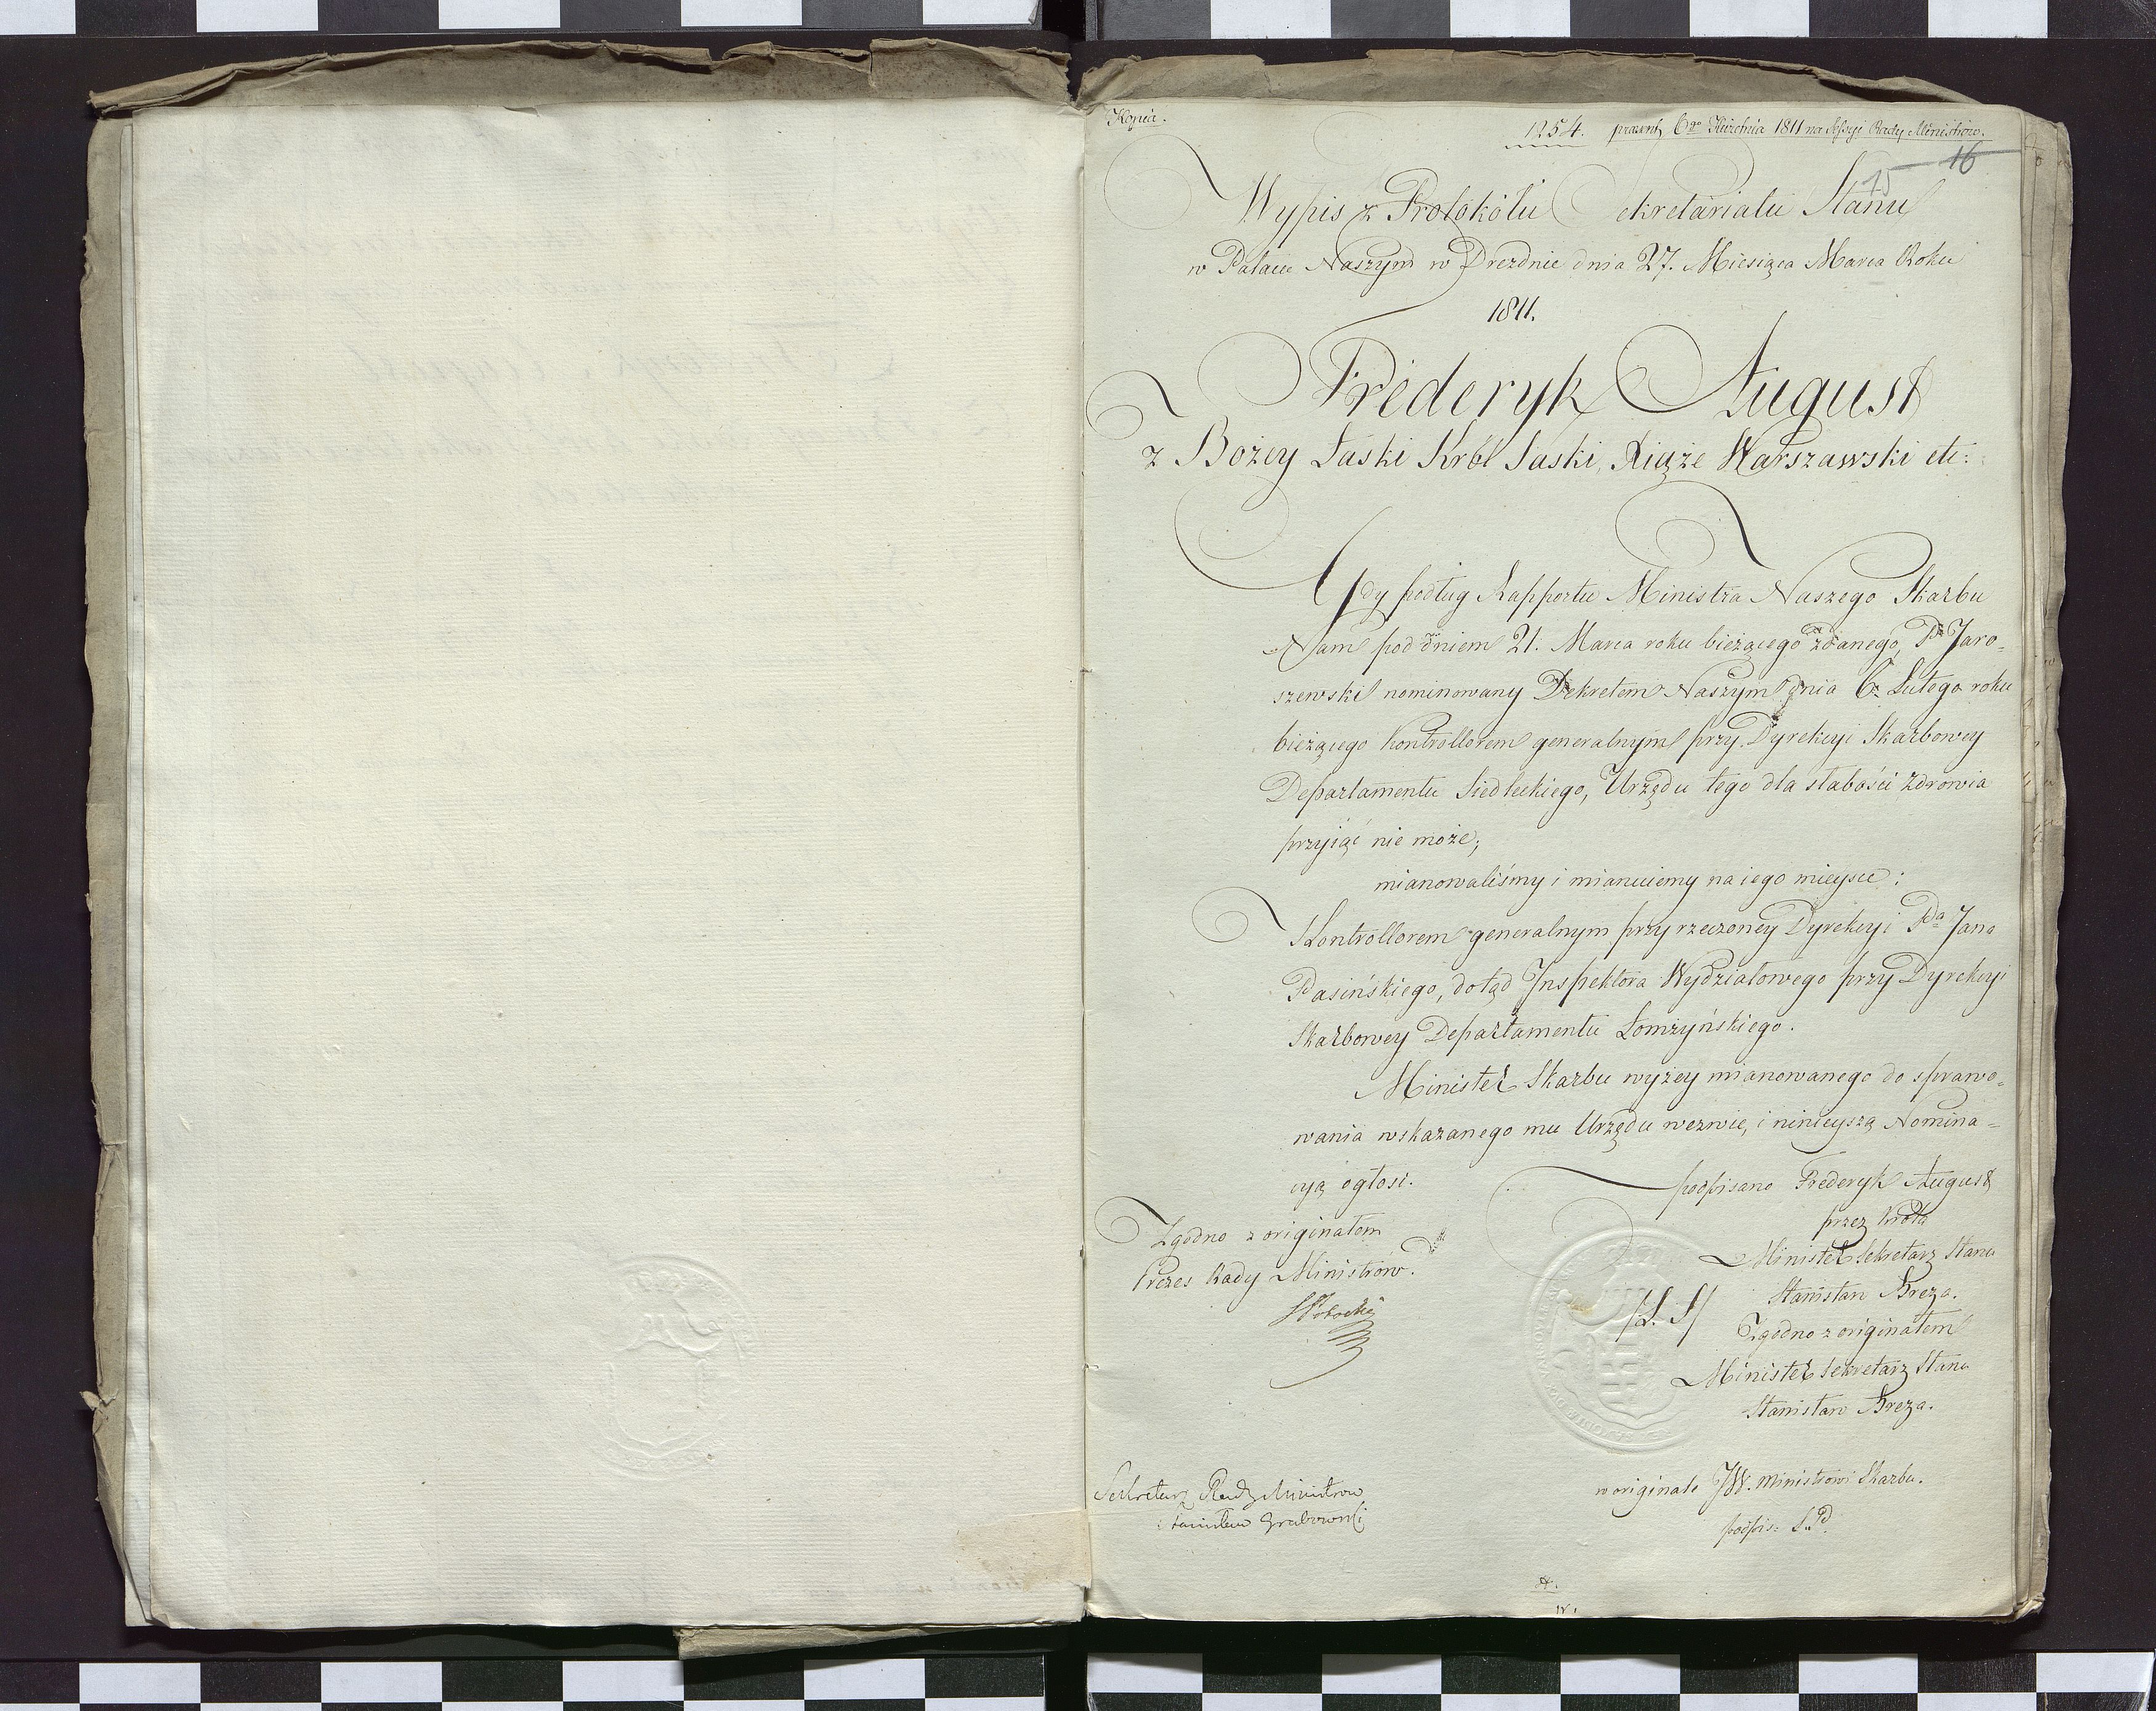 Kopia.
1254. prezent 6go Kwietnia 1811 na Sessyi Rady Ministrów.
15 16
Wypis z Protokółu Sekretariatu Stanu
w Pałacu Naszym w Dreznie dnia 27. Miesiąca Marca Roku
1811.
Frederyk August
z Bożey Łaski Król Saski, Xiąże Warszawski etc:
Gdy podług Rapportu Ministra Naszego Skarbu
Nam pod dniem 21. Marca roku bieżącego zdanego, Pn Jaro=
szewski nominowany Dekretem Naszym dnia 6. Lutego roku
bieżącego Kontrollorem generalnym przy Dyrekcyi Skarbowey
Departamentu Siedleckiego, Urzędu tego dla słabości zdrowia
przyiąć nie może;
mianowaliśmy i mianuiemy na iego mieysce:
Kontrollorem generalnym przy rzeczoney Dyrekcyi Pa Jana
Pasińskiego, dotąd Inspektora Wydziałowego przy Dyrekcyi
Skarbowey Departamentu Łomżyńskiego.
Minister Skarbu wyżey mianowanego do sprawo=
wania wskazanego mu Urzędu wezwie, i ninieyszą Nomina=
cyą ogłosi.
podpisano Frederyk August
przez Króla
Minister Sekretarz Stanu
Stanisław Breza.
/L. S/
Zgodno z originałem
Minister Sekretarz Stanu
Stanisław Breza.
Zgodno z originałem
Prezes Rady Ministrów.
SPotocki
Sekretarz Rady Ministrow
Stanisław Grabowski
w originale JW. Ministrowi Skarbu.
podpis: S. P.